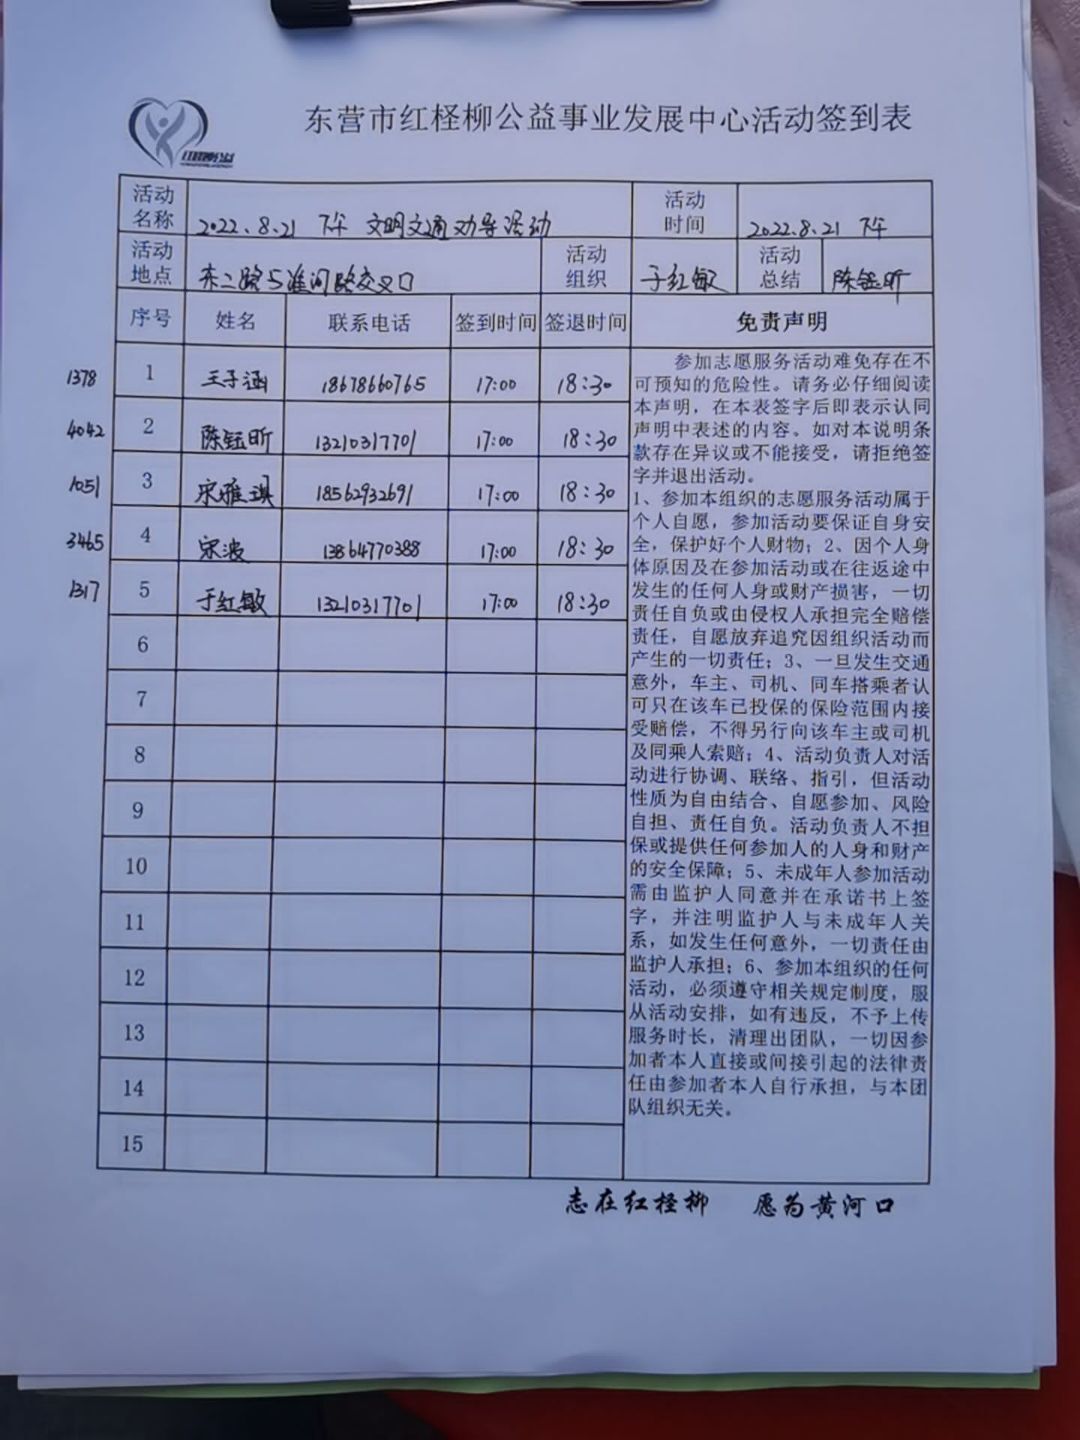 东营市红柽柳公益事业发展中心活动签到表
活动名称 2022.8.21 下午 文明交通劝导活动 活动时间 2022.8.21 下午
活动地点 东二路与淮河路交叉口 活动组织 于红敏 活动总结 陈钰昕
序号 姓名 联系电话 签到时间 签退时间 免责声明
1378 1 王子涵 18678660765 17:00 18:30
4042 2 陈钰昕 13210317701 17:00 18:30
1051 3 宋雅琪 18562932691 17:00 18:30
3465 4 宋波 13864770388 17:00 18:30
1317 5 于红敏 13210317701 17:00 18:30
6
7
8
9
10
11
12
13
14
15
参加志愿服务活动难免存在不
可预知的危险性。请务必仔细阅读
本声明，在本表签字后即表示认同
声明中表述的内容。如对本说明条
款存在异议或不能接受，请拒绝签
字并退出活动。
1、参加本组织的志愿服务活动属于
个人自愿，参加活动要保证自身安
全，保护好个人财物；2、因个人身
体原因及在参加活动或在往返途中
发生的任何人身或财产损害，一切
责任自负或由侵权人承担完全赔偿
责任，自愿放弃追究因组织活动而
产生的一切责任；3、一旦发生交通
意外，车主、司机、同车搭乘者认
可只在该车已投保的保险范围内接
受赔偿，不得另行向该车主或司机
及同乘人索赔；4、活动负责人对活
动进行协调、联络、指引，但活动
性质为自由结合、自愿参加、风险
自担、责任自负。活动负责人不担
保或提供任何参加人的人身和财产
的安全保障；5、未成年人参加活动
需由监护人同意并在承诺书上签
字，并注明监护人与未成年人关
系，如发生任何意外，一切责任由
监护人承担；6、参加本组织的任何
活动，必须遵守相关规定制度，服
从活动安排，如有违反，不予上传
服务时长，清理出团队，一切因参
加者本人直接或间接引起的法律责
任由参加者本人自行承担，与本团
队组织无关。
志在红柽柳 愿为黄河口